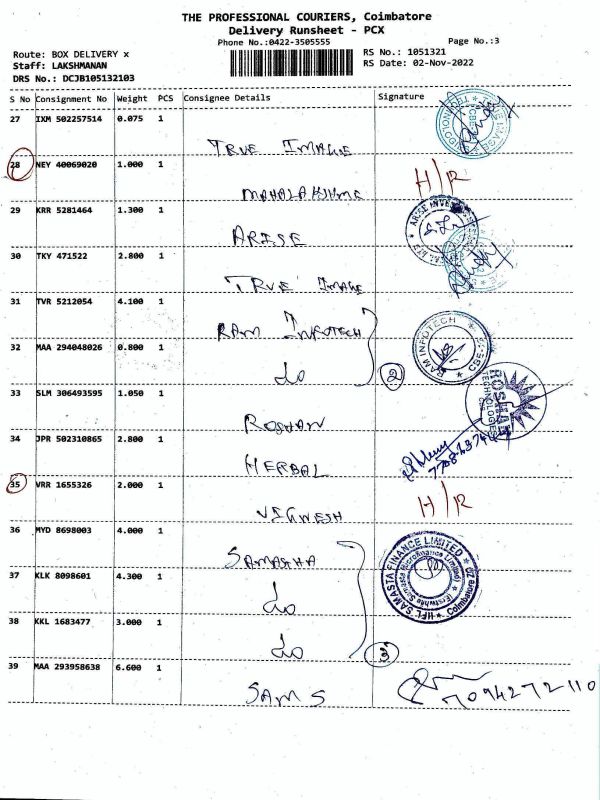 THE PROFESSIONAL COURIERS, Coimbatore
Delivery Runsheet - PCX
Phone No.:0422-3505555 Page No.:3
Route: BOX DELIVERY x RS No.: 1051321
Staff: LAKSHMANAN RS Date: 02-Nov-2022
DRS No.: DCJB105132103
S No Consignment No Weight PCS Consignee Details Signature
27 IXM 502257514 0.075 1
TRUE IMAGE
28 NEY 40069020 1.000 1
MAHALAKSHME H/R
29 KRR 5281464 1.300 1
ARISE
30 TKY 471522 2.800 1
TRUE IMAGE
31 TVR 5212054 4.100 1
RAM INFOTECH
RAM INFOTECH
32 MAA 294048026 0.800 1
do 2
33 SLM 306493595 1.050 1
ROSHAN
ROSHAN TECHNOLOGIES
34 JPR 502310865 2.800 1
HERBAL
35 VRR 1655326 2.000 1
VIGNESH H/R
36 MYD 8698003 4.000 1
SAMASTHA
37 KLK 8098601 4.300 1
do
HFL SAMASTA FINANCE LIMITED
Coimbatore
38 KKL 1683477 3.000 1
do 3
39 MAA 293958638 6.600 1
SAMS 7094272110